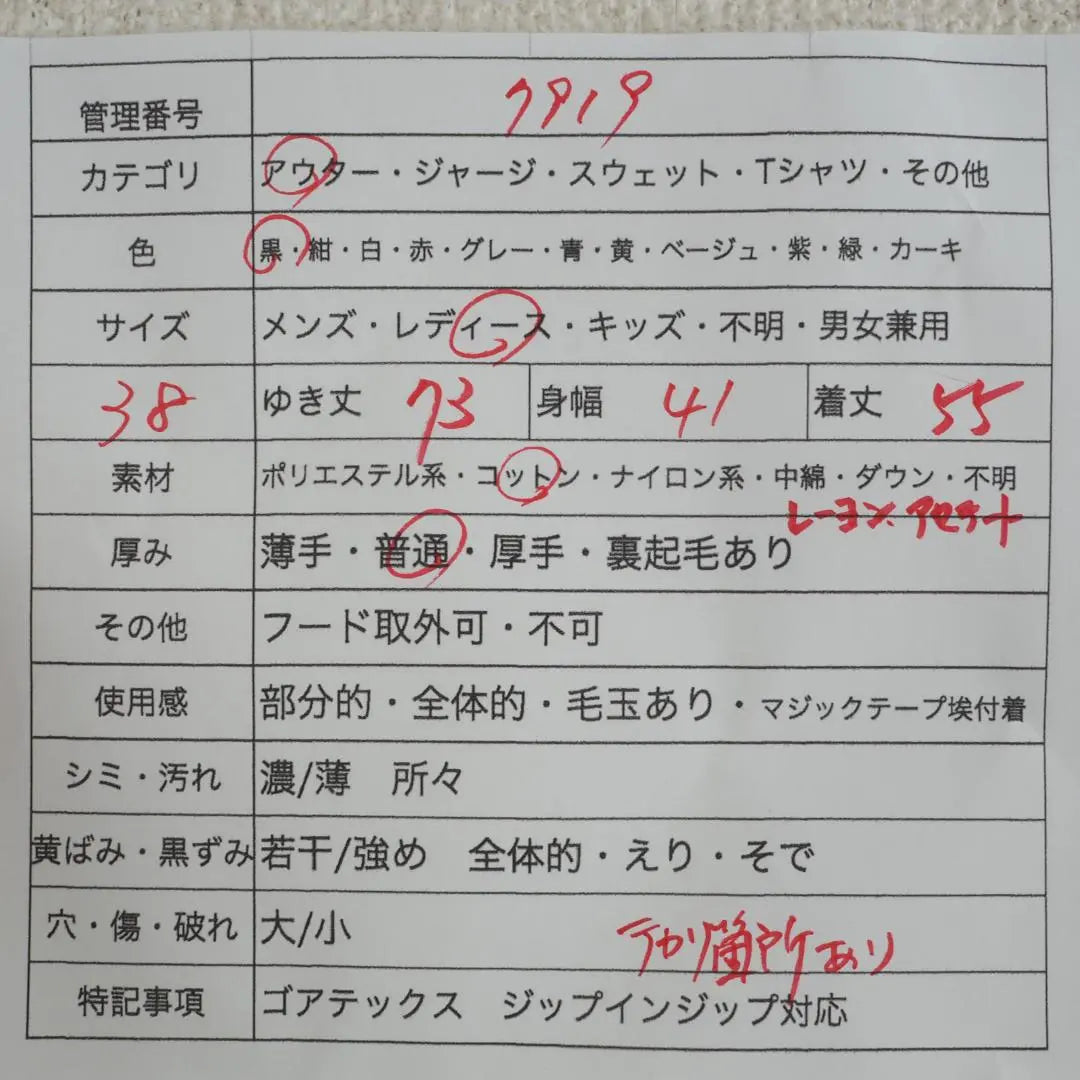 管理番号 7919
カテゴリ アウター・ジャージ・スウェット・Tシャツ・その他
色 黒・紺・白・赤・グレー・青・黄・ベージュ・紫・緑・カーキ
サイズ メンズ・レディース・キッズ・不明・男女兼用
38 ゆき丈 73 身幅 41 着丈 55
素材 ポリエステル系・コットン・ナイロン系・中綿・ダウン・不明
レーヨン、アセテート
厚み 薄手・普通・厚手・裏起毛あり
その他 フード取外可・不可
使用感 部分的・全体的・毛玉あり・マジックテープ埃付着
シミ・汚れ 濃/薄 所々
黄ばみ・黒ずみ 若干/強め 全体的・えり・そで
穴・傷・破れ 大/小
テカリ箇所あり
特記事項 ゴアテックス ジップインジップ対応